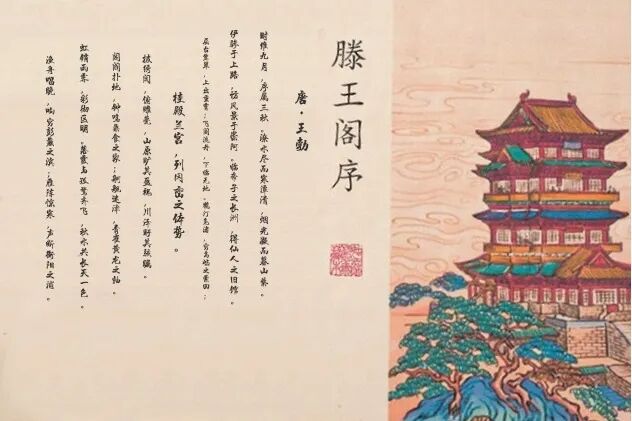 滕王阁序
唐·王勃
时维九月，序属三秋。潦水尽而寒潭清，烟光凝而暮山紫。
伊骖于上路，访风景于崇阿。临帝子之长洲，得仙人之旧馆。
层台耸翠，上出重霄；飞阁流丹，下临无地。鹤汀凫渚，穷岛屿之萦回；
桂殿兰宫，列冈峦之体势。
披绣闼，俯雕甍，山原旷其盈视，川泽纡其骇瞩。
闾阎扑地，钟鸣鼎食之家；舸舰迷津，青雀黄龙之舳。
虹销雨霁，彩彻区明。落霞与孤鹜齐飞，秋水共长天一色。
渔舟唱晚，响穷彭蠡之滨；雁阵惊寒，声断衡阳之浦。